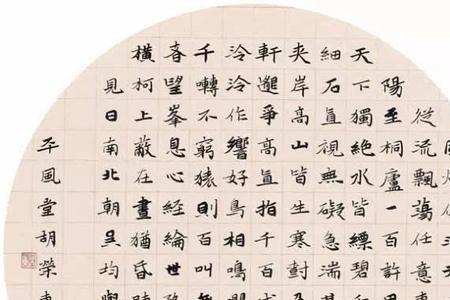 從流飄蕩任意
陽至桐廬一百許
天下獨絶水皆縹碧
細石直視無礙急湍
夾岸高山皆生寒樹
軒邈爭高直指千百
泠泠作響好鳥相鳴
千囀不窮猿則百叫
者望峯息心經綸世
橫柯上蔽在晝猶昏
見日南北朝吳均與
平風堂胡榮